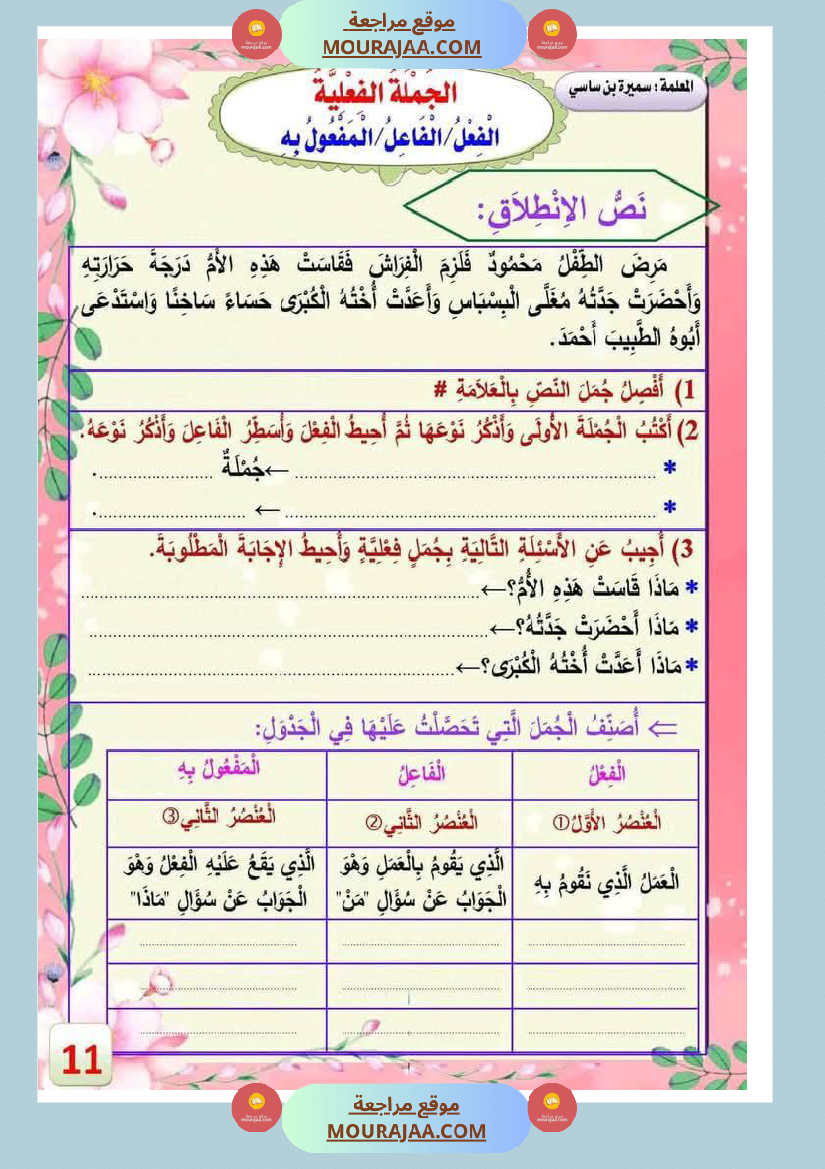 موقع مراجعة
MOURAJAA.COM
المعلمة : سميرة بن ساسي
الجُمْلَةُ الفِعْلِيَّةُ
الْفِعْلُ/الْفَاعِلُ/الْمَفْعُولُ بِهِ
نَصُّ الاِنْطِلاَقِ:
مَرِضَ الطِّفْلُ مَحْمُودٌ فَلَزِمَ الْفِرَاشَ فَقَاسَتْ هَذِهِ الأُمُّ دَرَجَةَ حَرَارَتِهِ
وَأَحْضَرَتْ جَدَّتُهُ مُغَلَّى الْبِسْبَاسِ وَأَعَدَّتْ أُخْتُهُ الْكُبْرَى حَسَاءً سَاخِنًا وَاسْتَدْعَى
أَبُوهُ الطَّبِيبَ أَحْمَدَ.
1) أَفْصِلُ جُمَلَ النّصِّ بِالْعَلاَمَةِ #
2) أَكْتُبُ الْجُمْلَةَ الأُولَى وَأَذْكُرُ نَوْعَهَا ثُمَّ أُحِيطُ الْفِعْلَ وَأُسَطِّرُ الْفَاعِلَ وَأَذْكُرُ نَوْعَهُ.
* .................... ←جُمْلَةٌ ....................
* .................... ← ....................
3) أُجِيبُ عَنِ الأَسْئِلَةِ التَّالِيَةِ بِجُمَلٍ فِعْلِيَّةٍ وَأُحِيطُ الإِجَابَةَ الْمَطْلُوبَةَ.
* مَاذَا قَاسَتْ هَذِهِ الأُمُّ؟← ....................
* مَاذَا أَحْضَرَتْ جَدَّتُهُ؟← ....................
* مَاذَا أَعَدَّتْ أُخْتُهُ الْكُبْرَى؟← ....................
⇐ أُصَنِّفُ الْجُمَلَ الَّتِي تَحَصَّلْتُ عَلَيْهَا فِي الْجَدْوَلِ:
الْفِعْلُ الْفَاعِلُ الْمَفْعُولُ بِهِ
الْعُنْصُرُ الأَوَّلُ① الْعُنْصُرُ الثَّانِي② الْعُنْصُرُ الثَّانِي③
الْعَمَلُ الَّذِي نَقُومُ بِهِ
الَّذِي يَقُومُ بِالْعَمَلِ وَهْوَ
الْجَوَابُ عَنْ سُؤَالِ "مَنْ"
الَّذِي يَقَعُ عَلَيْهِ الْفِعْلُ وَهْوَ
الْجَوَابُ عَنْ سُؤَالِ "مَاذَا"
11
موقع مراجعة
MOURAJAA.COM